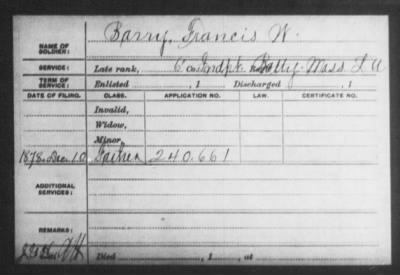 NAME OF SOLDIER: Barry, Francis W.
SERVICE: Late rank, 6 Co. Indpt. Batty. Mass L A
TERM OF SERVICE: Enlisted , 1 Discharged , 1
DATE OF FILING. CLASS. APPLICATION NO. LAW. CERTIFICATE NO.
Invalid,
Widow,
Minor,
1878, Dec. 10 Father 240.661
ADDITIONAL SERVICES:
REMARKS:
Died , 1 , at